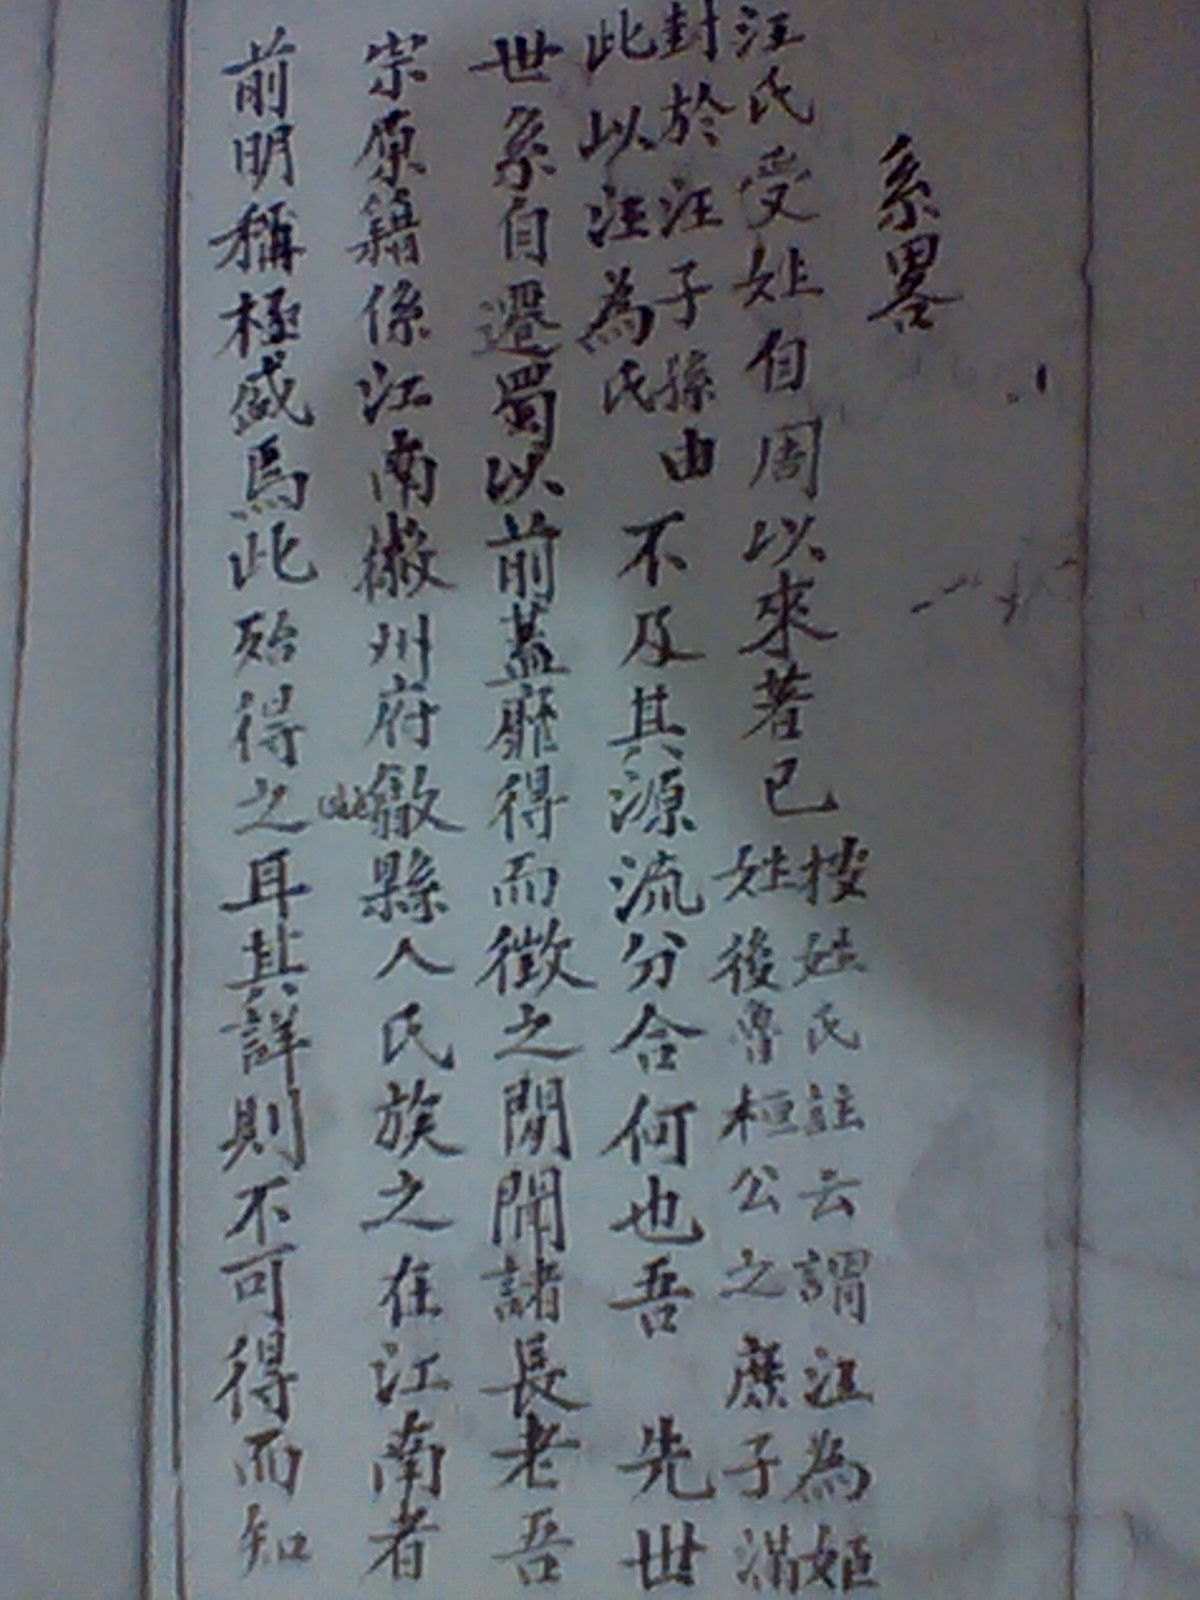 系畧
汪氏受姓自周以來著已按姓氏註云謂汪為姬
姓後魯桓公之庶子滿
封於汪子孫由
此以汪為氏不及其源流分合何也吾先世
世系自遷蜀以前蓋靡得而徵之閒聞諸長老吾
宗原籍係江南徽州府歙縣人氏族之在江南者
前明稱極盛焉此殆得之耳其詳則不可得而知